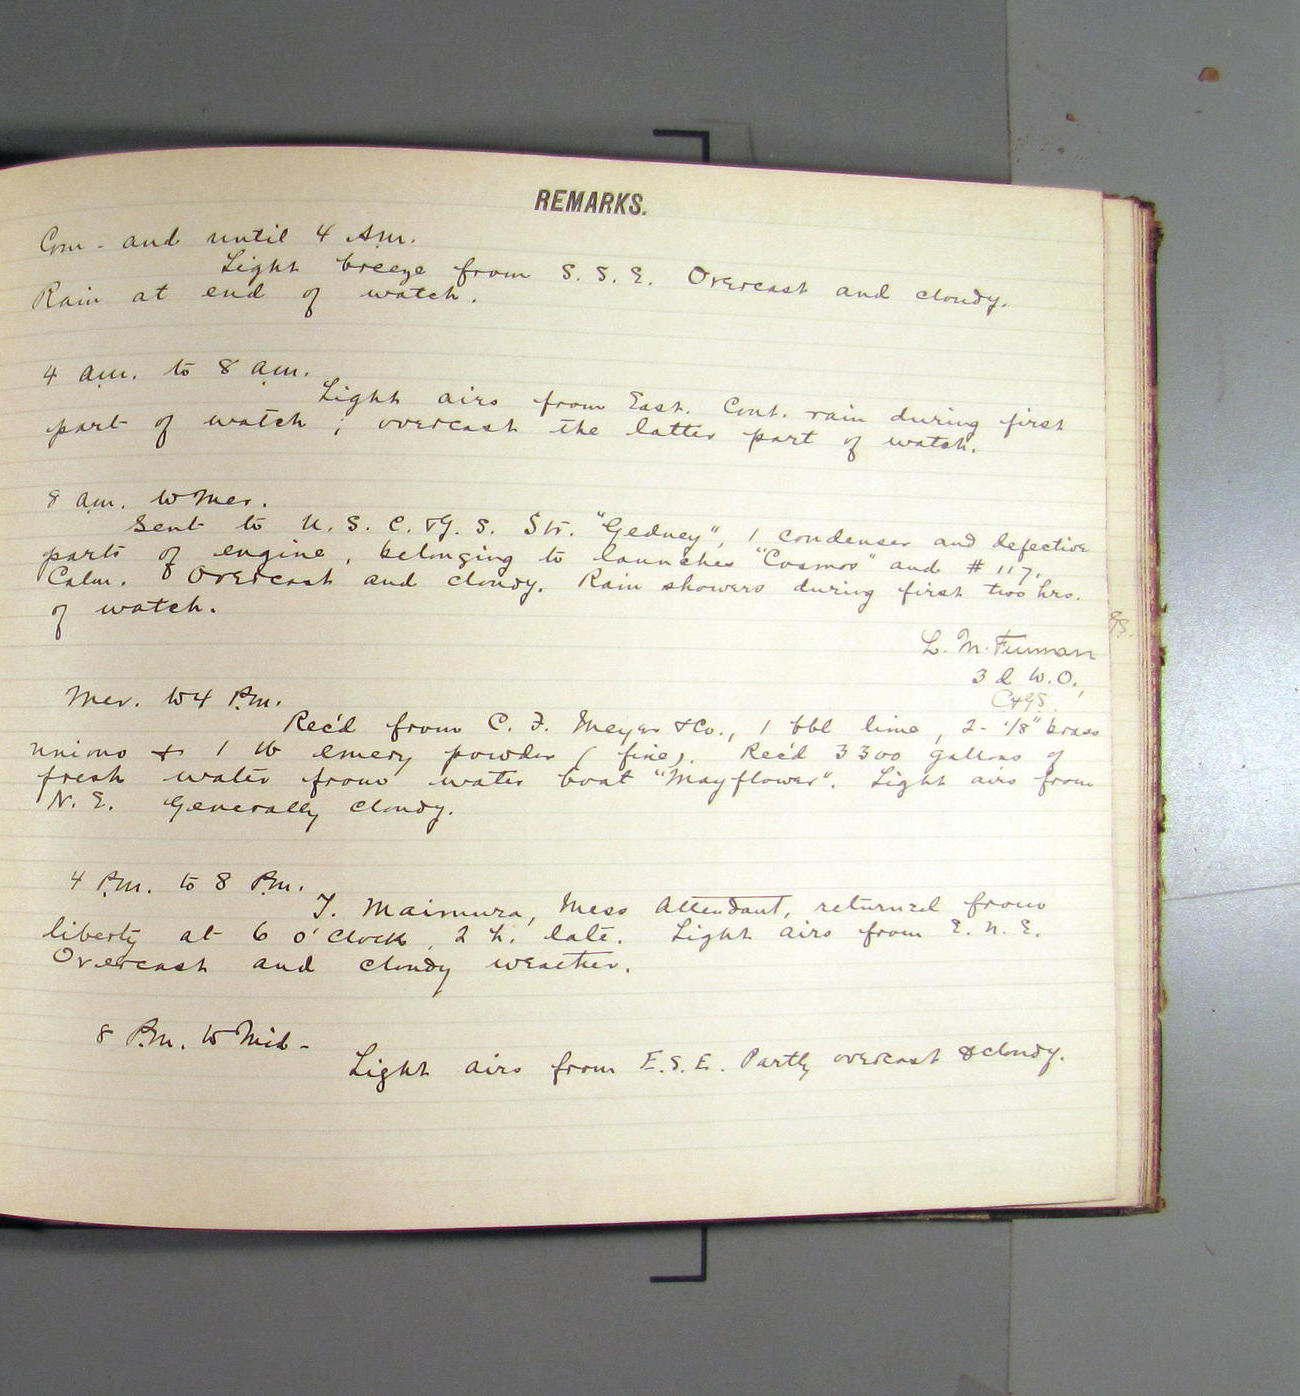 REMARKS.
Com - and until 4 A.m.
Light breeze from S. S. E. Overcast and cloudy.
Rain at end of watch.
4 a.m. to 8 a.m.
Light airs from East. Cont. rain during first
part of watch ; overcast the latter part of watch.
8 a.m. to Mer.
Sent to U. S. C. & G. S. Str. "Gedney", 1 condenser and defective
parts of engine, belonging to launches "Cosmos" and # 117.
Calm. Overcast and cloudy. Rain showers during first two hrs.
of watch.
L. M. Furman
3d W.O.,
C&GS.
Mer. to 4 P.m.
Rec'd from C. F. Meyer & Co., 1 bbl lime, 2- 1/8" brass
unions & 1 lb emery powder (fine). Rec'd 3300 gallons of
fresh water from water boat "Mayflower". Light airs from
N. E. Generally cloudy.
4 P.m. to 8 P.m.
T. Maimura, Mess Attendant, returned from
liberty at 6 o'clock, 2 h. late. Light airs from E. N. E.
Overcast and cloudy weather.
8 P.m. to Mid -
Light airs from E. S. E. Partly overcast & cloudy.